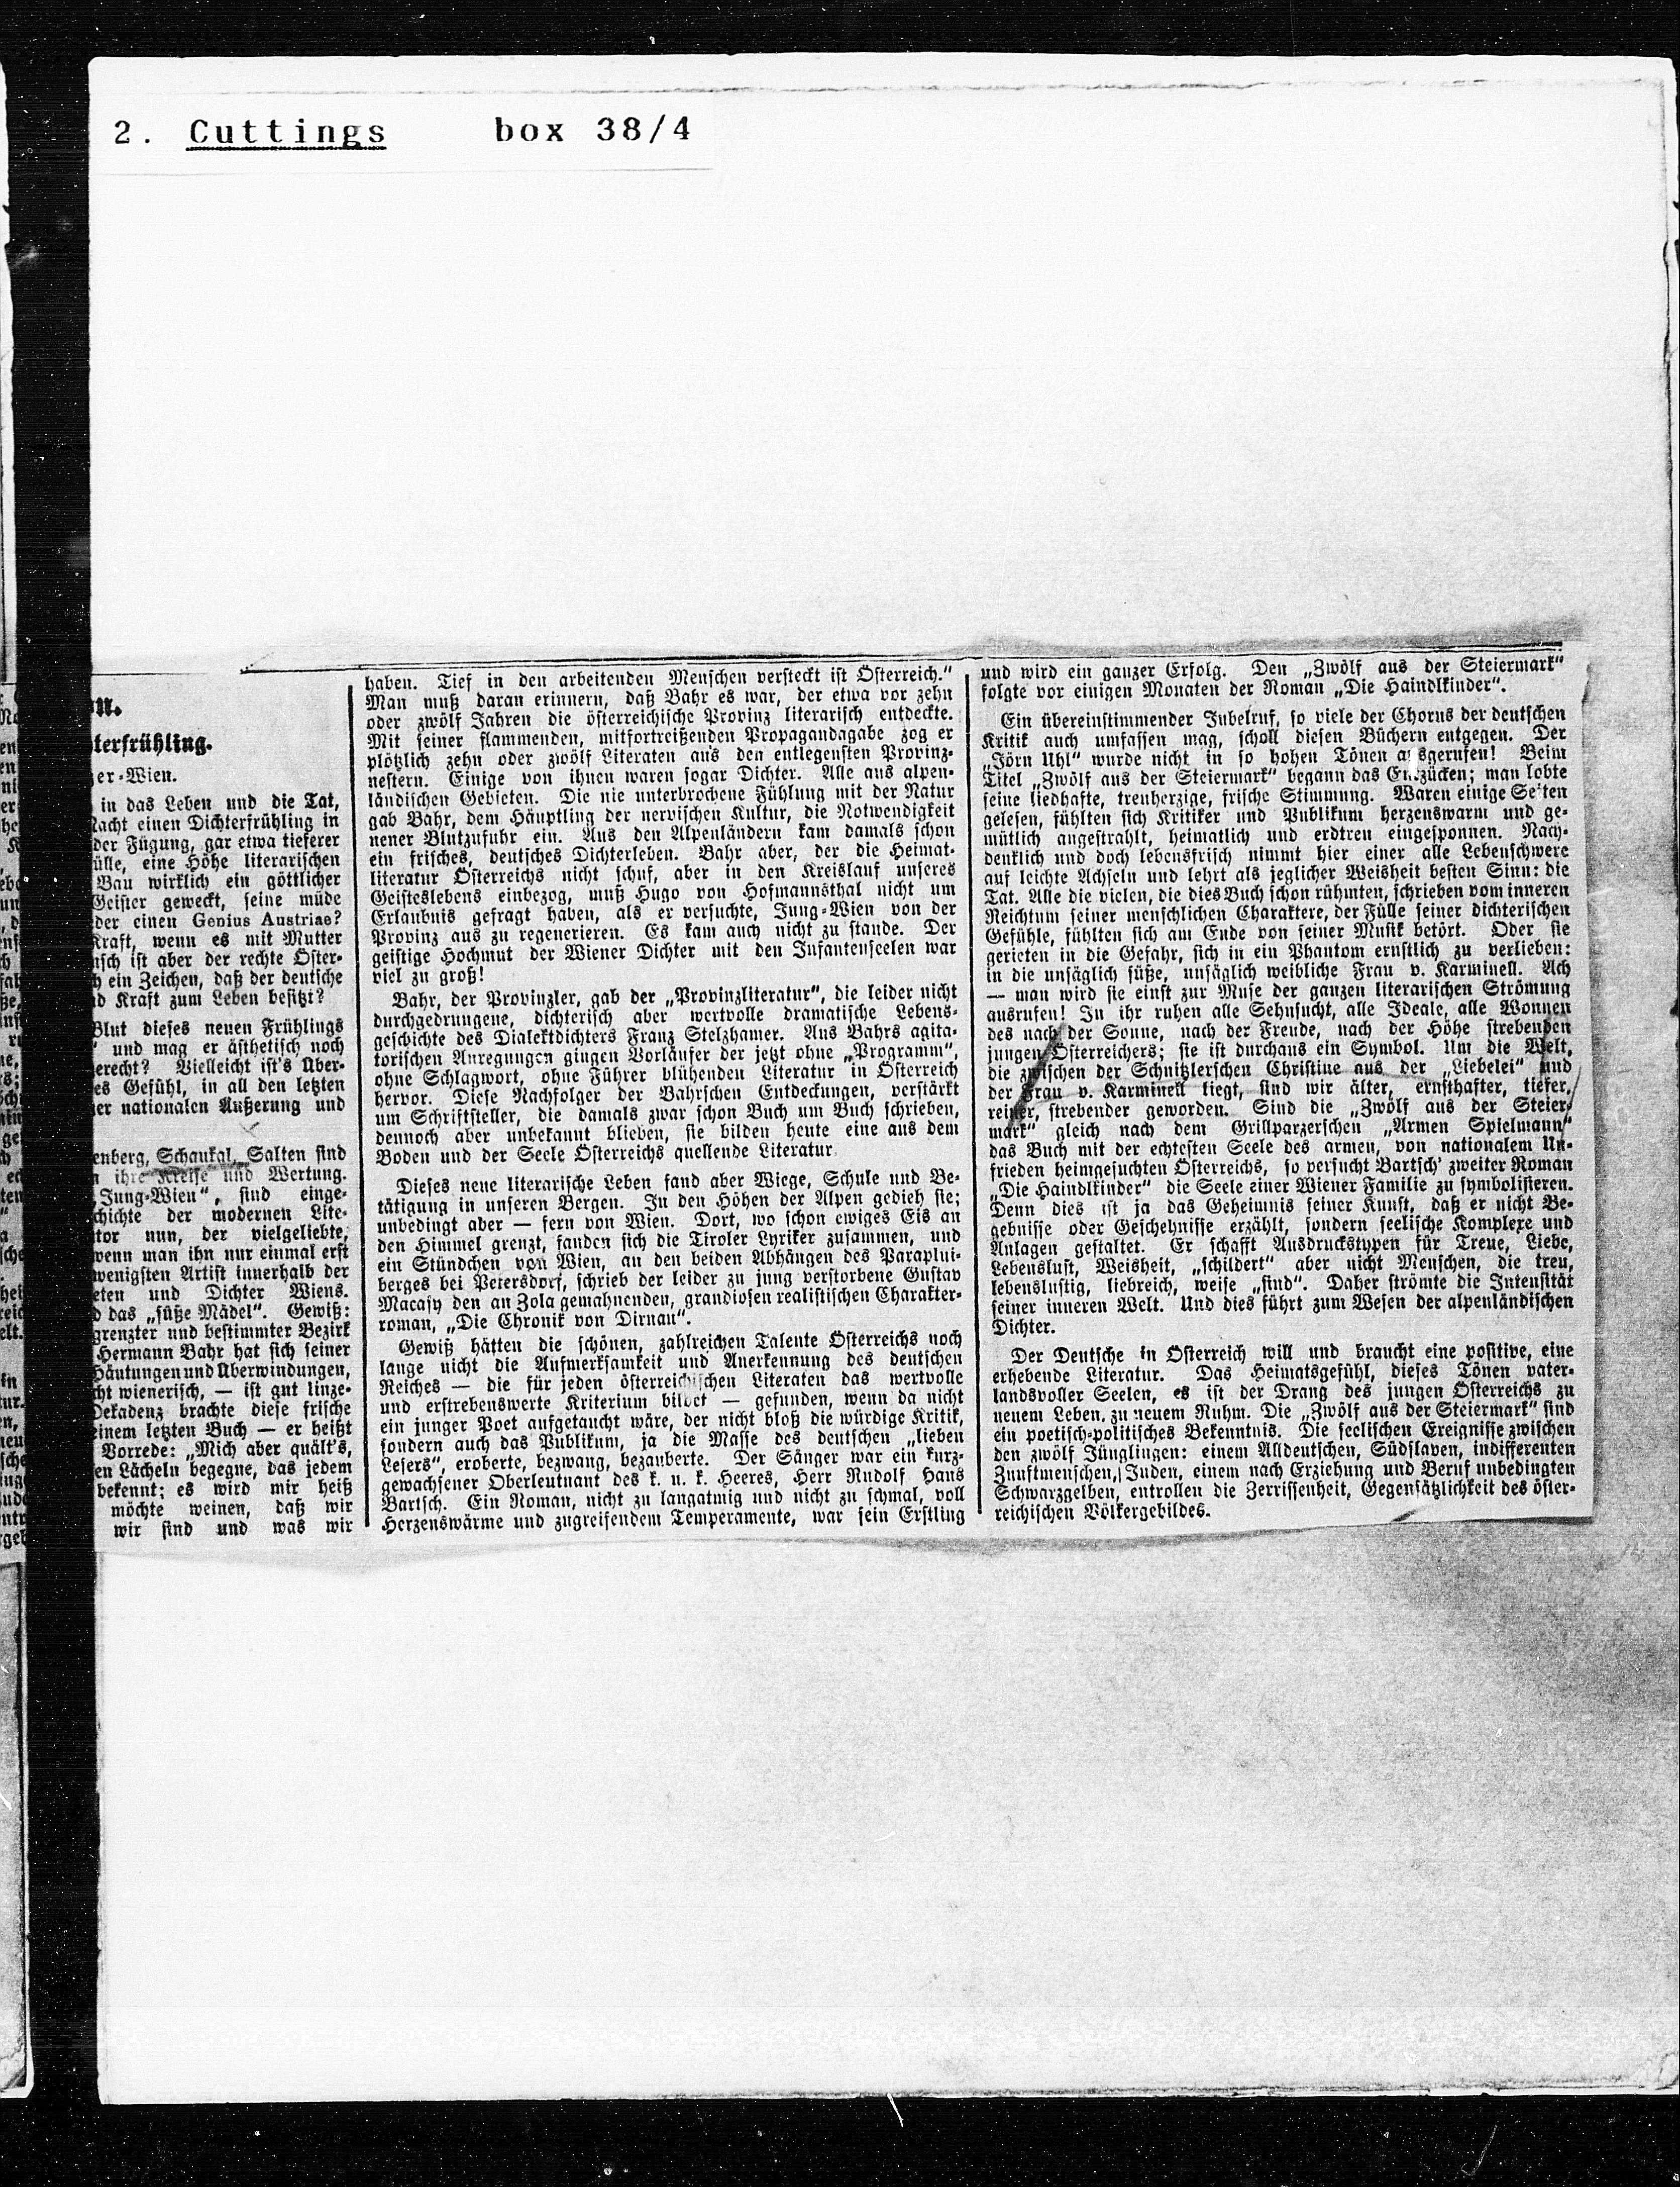 2. Cuttings box 38/4
terfrühling.
er-Wien.
in das Leben und die Tat,
Nacht einen Dichterfrühling in
der Fügung, gar etwa tieferer
ülle, eine Höhe literarischen
Bau wirklich ein göttlicher
Geister geweckt, seine müde
der einen Genius Austriae?
Kraft, wenn es mit Mutter
nsch ist aber der rechte Öster-
h ein Zeichen, daß der deutsche
d Kraft zum Leben besitzt?
Blut dieses neuen Frühlings
und mag er ästhetisch noch
erecht? Vielleicht ist's Über-
es Gefühl, in all den letzten
er nationalen Äußerung und
enberg, Schaukal, Salten sind
n ihre Kreise und Wertung.
Jung-Wien", sind einge-
chichte der modernen Lite-
tor nun, der vielgeliebte,
wenn man ihn nur einmal erst
wenigsten Artist innerhalb der
eten und Dichter Wiens.
d das „süße Mädel". Gewiß:
grenzter und bestimmter Bezirk
Hermann Bahr hat sich seiner
Häutungen und Überwindungen,
cht wienerisch, — ist gut linze-
Dekadenz brachte diese frische
einem letzten Buch — er heißt
Vorrede: „Mich aber quält's,
en Lächeln begegne, das jedem
bekennt; es wird mir heiß
möchte weinen, daß wir
wir sind und was wir
haben. Tief in den arbeitenden Menschen versteckt ist Österreich."
Man muß daran erinnern, daß Bahr es war, der etwa vor zehn
oder zwölf Jahren die österreichische Provinz literarisch entdeckte.
Mit seiner flammenden, mitfortreißenden Propagandagabe zog er
plötzlich zehn oder zwölf Literaten aus den entlegensten Provinz-
nestern. Einige von ihnen waren sogar Dichter. Alle aus alpen-
ländischen Gebieten. Die nie unterbrochene Fühlung mit der Natur
gab Bahr, dem Häuptling der nervischen Kultur, die Notwendigkeit
neuer Blutzufuhr ein. Aus den Alpenländern kam damals schon
ein frisches, deutsches Dichterleben. Bahr aber, der die Heimat-
literatur Österreichs nicht schuf, aber in den Kreislauf unseres
Geisteslebens einbezog, muß Hugo von Hofmannsthal nicht um
Erlaubnis gefragt haben, als er versuchte, Jung-Wien von der
Provinz aus zu regenerieren. Es kam auch nicht zu stande. Der
geistige Hochmut der Wiener Dichter mit den Infantenseelen war
viel zu groß!
Bahr, der Provinzler, gab der „Provinzliteratur", die leider nicht
durchgedrungene, dichterisch aber wertvolle dramatische Lebens-
geschichte des Dialektdichters Franz Stelzhamer. Aus Bahrs agita-
torischen Anregungen gingen Vorläufer der jetzt ohne „Programm",
ohne Schlagwort, ohne Führer blühenden Literatur in Österreich
hervor. Diese Nachfolger der Bahrschen Entdeckungen, verstärkt
um Schriftsteller, die damals zwar schon Buch um Buch schrieben,
dennoch aber unbekannt blieben, sie bilden heute eine aus dem
Boden und der Seele Österreichs quellende Literatur.
Dieses neue literarische Leben fand aber Wiege, Schule und Be-
tätigung in unseren Bergen. In den Höhen der Alpen gedieh sie;
unbedingt aber — fern von Wien. Dort, wo schon ewiges Eis an
den Himmel grenzt, fanden sich die Tiroler Lyriker zusammen, und
ein Stündchen von Wien, an den beiden Abhängen des Paraplui-
berges bei Petersdorf, schrieb der leider zu jung verstorbene Gustav
Macasy den an Zola gemahnenden, grandiosen realistischen Charakter-
roman, „Die Chronik von Dirnau".
Gewiß hätten die schönen, zahlreichen Talente Österreichs noch
lange nicht die Aufmerksamkeit und Anerkennung des deutschen
Reiches — die für jeden österreichischen Literaten das wertvolle
und erstrebenswerte Kriterium bildet — gefunden, wenn da nicht
ein junger Poet aufgetaucht wäre, der nicht bloß die würdige Kritik,
sondern auch das Publikum, ja die Masse des deutschen „lieben
Lesers", eroberte, bezwang, bezauberte. Der Sänger war ein kurz-
gewachsener Oberleutnant des k. u. k. Heeres, Herr Rudolf Hans
Bartsch. Ein Roman, nicht zu langatmig und nicht zu schmal, voll
Herzenswärme und zugreifendem Temperamente, war sein Erstling
und wird ein ganzer Erfolg. Den „Zwölf aus der Steiermark"
folgte vor einigen Monaten der Roman „Die Haindlkinder".
Ein übereinstimmender Jubelruf, so viele der Chorus der deutschen
Kritik auch umfassen mag, scholl diesen Büchern entgegen. Der
„Jörn Uhl" wurde nicht in so hohen Tönen ausgerufen! Beim
Titel „Zwölf aus der Steiermark" begann das Entzücken; man lobte
seine liedhafte, treuherzige, frische Stimmung. Waren einige Seiten
gelesen, fühlten sich Kritiker und Publikum herzenswarm und ge-
mütlich angestrahlt, heimatlich und erdtreu eingesponnen. Nach-
denklich und doch lebensfrisch nimmt hier einer alle Lebensschwere
auf leichte Achseln und lehrt als jeglicher Weisheit besten Sinn: die
Tat. Alle die vielen, die dies Buch schon rühmten, schrieben vom inneren
Reichtum seiner menschlichen Charaktere, der Fülle seiner dichterischen
Gefühle, fühlten sich am Ende von seiner Musik betört. Oder sie
gerieten in die Gefahr, sich in ein Phantom ernstlich zu verlieben:
in die unsäglich süße, unsäglich weibliche Frau v. Karminell. Ach
— man wird sie einst zur Muse der ganzen literarischen Strömung
ausrufen! In ihr ruhen alle Sehnsucht, alle Ideale, alle Wonnen
des nach der Sonne, nach der Freude, nach der Höhe strebenden
jungen Österreichers; sie ist durchaus ein Symbol. Um die Welt,
die zwischen der Schnitzlerschen Christine aus der „Liebelei" und
der Frau v. Karminell liegt, sind wir älter, ernsthafter, tiefer,
reiner, strebender geworden. Sind die „Zwölf aus der Steier-
mark" gleich nach dem Grillparzerschen „Armen Spielmann"
das Buch mit der echtesten Seele des armen, von nationalem Un-
frieden heimgesuchten Österreichs, so versucht Bartsch' zweiter Roman
„Die Haindlkinder" die Seele einer Wiener Familie zu symbolisieren.
Denn dies ist ja das Geheimnis seiner Kunst, daß er nicht Be-
gebnisse oder Geschehnisse erzählt, sondern seelische Komplexe und
Anlagen gestaltet. Er schafft Ausdruckstypen für Treue, Liebe,
Lebenslust, Weisheit, „schildert" aber nicht Menschen, die treu,
lebenslustig, liebreich, weise „sind". Daher strömte die Intensität
seiner inneren Welt. Und dies führt zum Wesen der alpenländischen
Dichter.
Der Deutsche in Österreich will und braucht eine positive, eine
erhebende Literatur. Das Heimatsgefühl, dieses Tönen vater-
landsvoller Seelen, es ist der Drang des jungen Österreichs zu
neuem Leben, zu neuem Ruhm. Die „Zwölf aus der Steiermark" sind
ein poetisch-politisches Bekenntnis. Die seelischen Ereignisse zwischen
den zwölf Jünglingen: einem Alldeutschen, Südslaven, indifferenten
Zunftmenschen, Juden, einem nach Erziehung und Beruf unbedingten
Schwarzgelben, entrollen die Zerrissenheit, Gegensätzlichkeit des öster-
reichischen Völkergebildes.